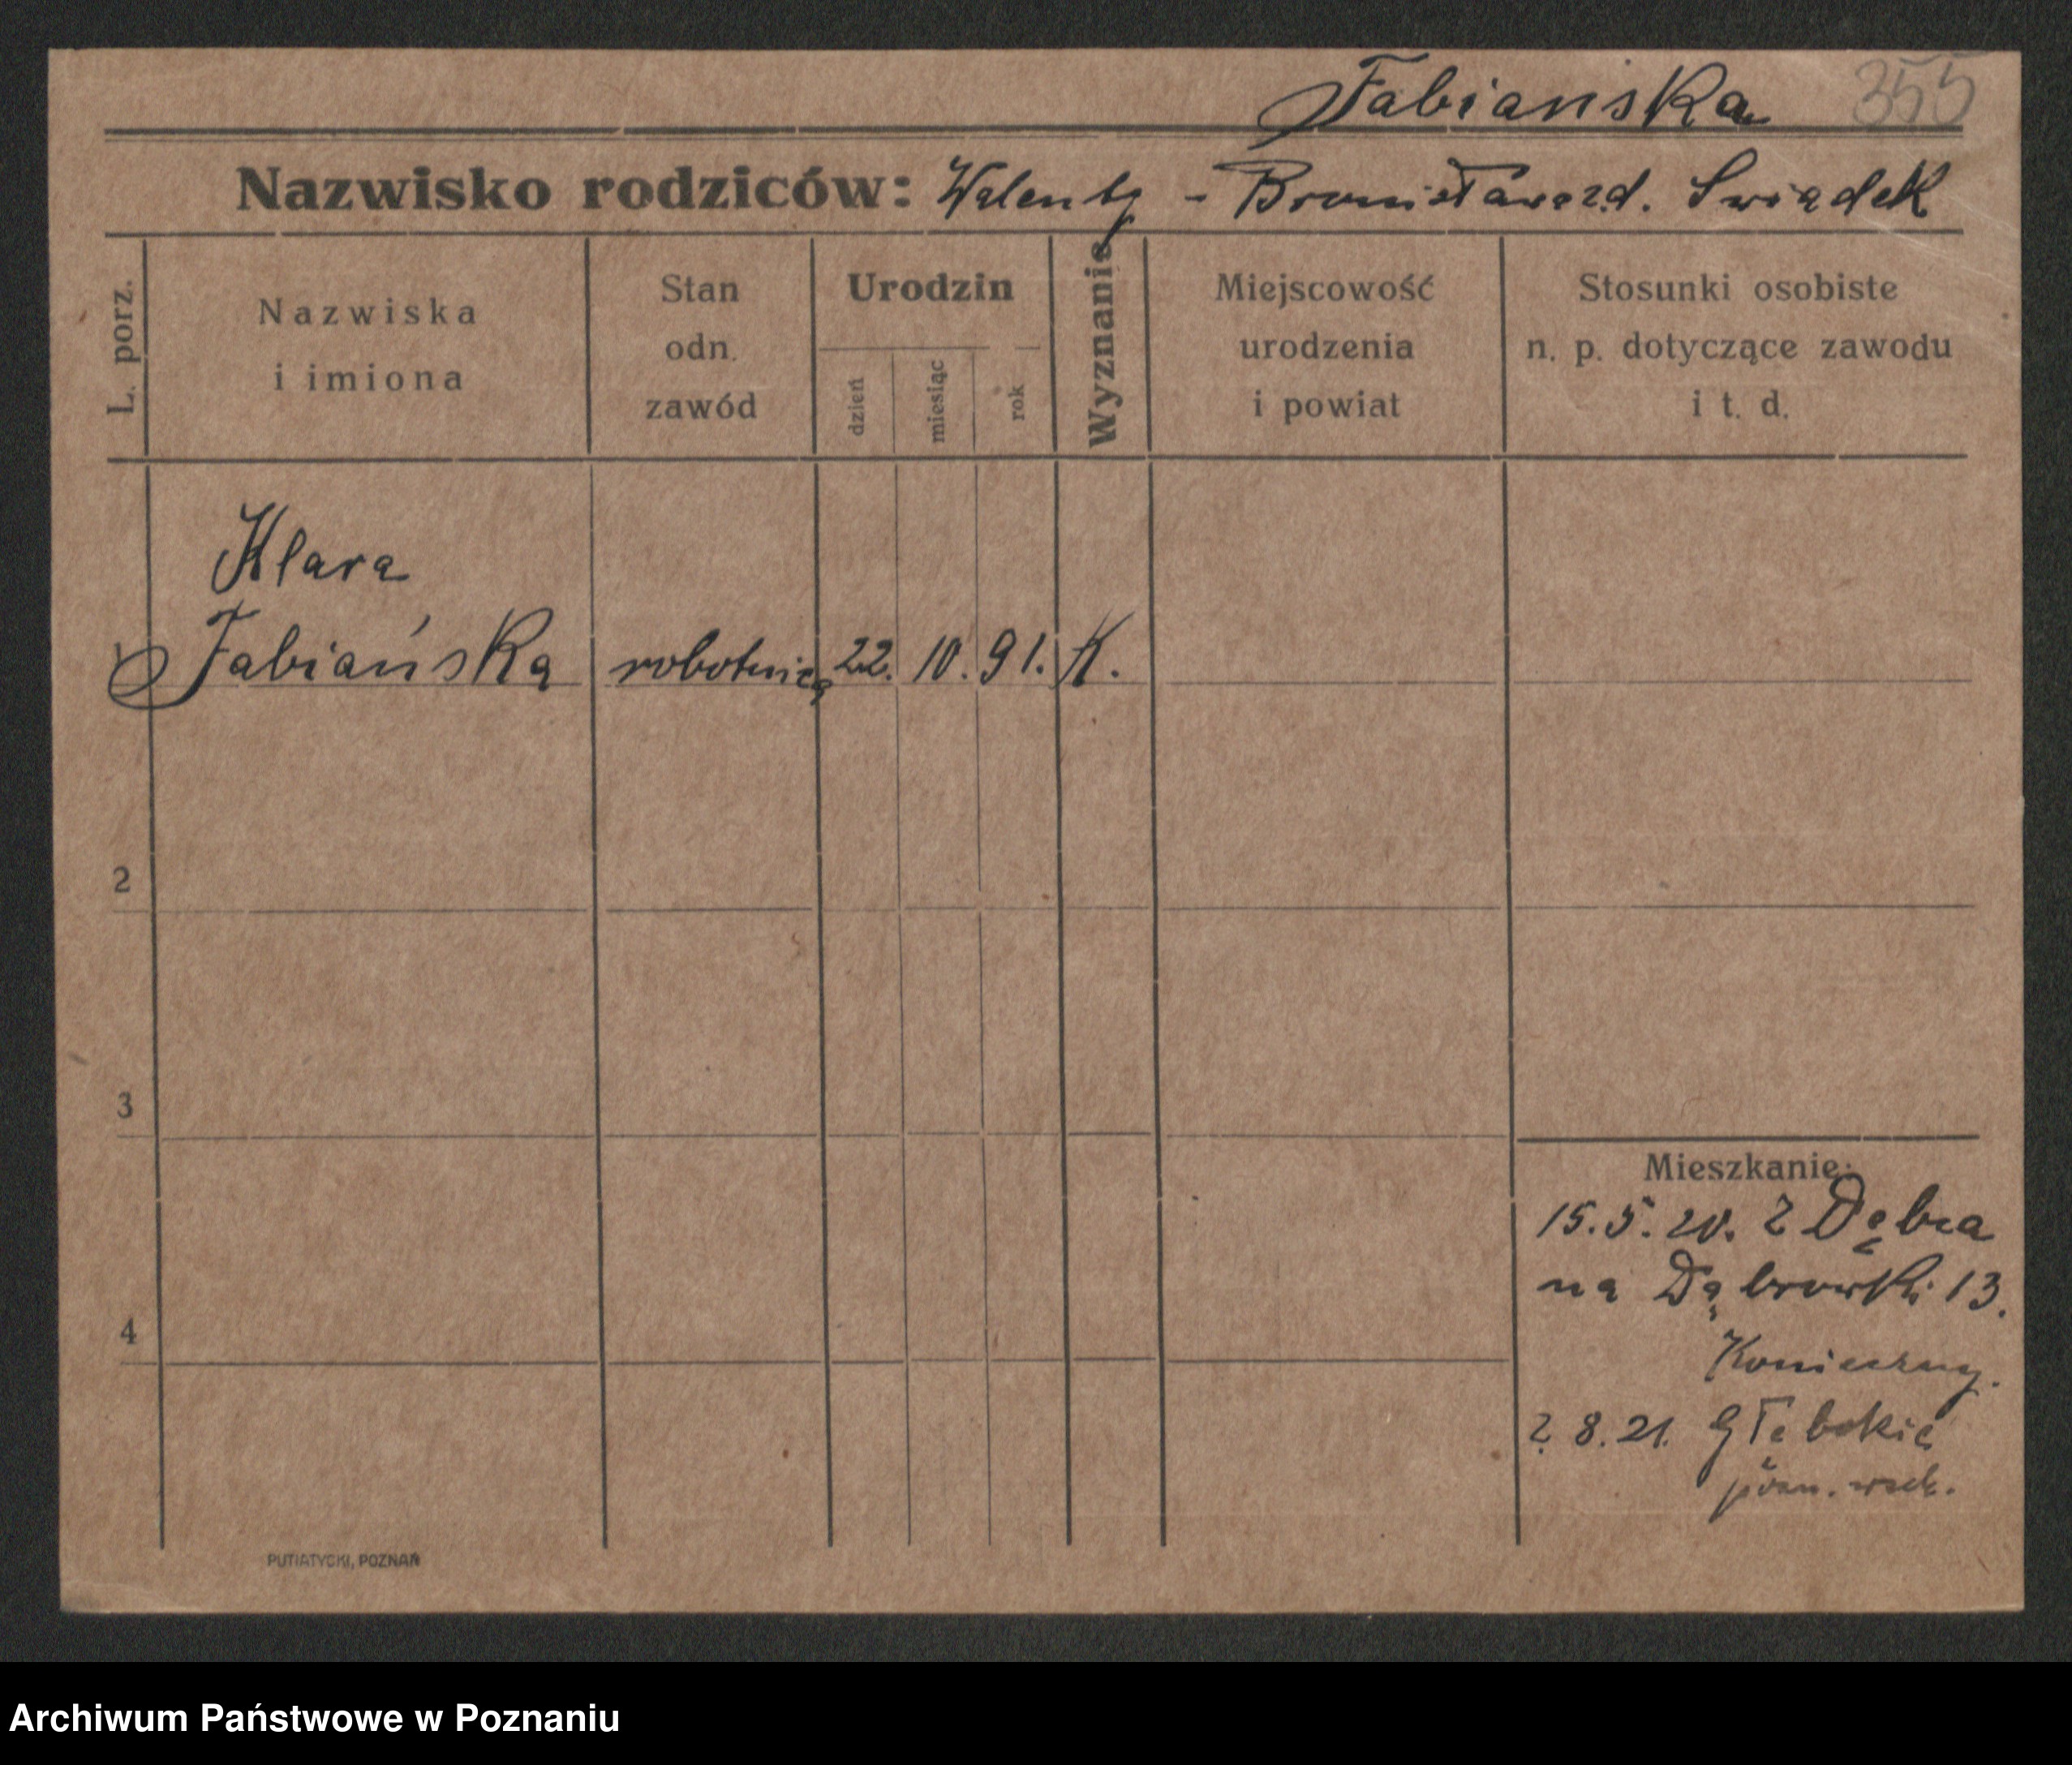 Fabianska 355
Nazwisko rodziców: Walenty - Bronisława zd. Swiadek
L. porz.
Nazwiska
i imiona
Stan
odn.
zawód
Urodzin
dzień
miesiąc
rok
Wyznanie
Miejscowość
urodzenia
i powiat
Stosunki osobiste
n. p. dotyczące zawodu
i t. d.
Klara
1 Fabiańska robotnica 22. 10. 91. K.
2
3
4
Mieszkanie:
15.5.20. z
na Dąbrowski 13.
Konieczny.
2. 8. 21. Głębokie
wsch.
PUTIATYCKI, POZNAŃ
Archiwum Państwowe w Poznaniu